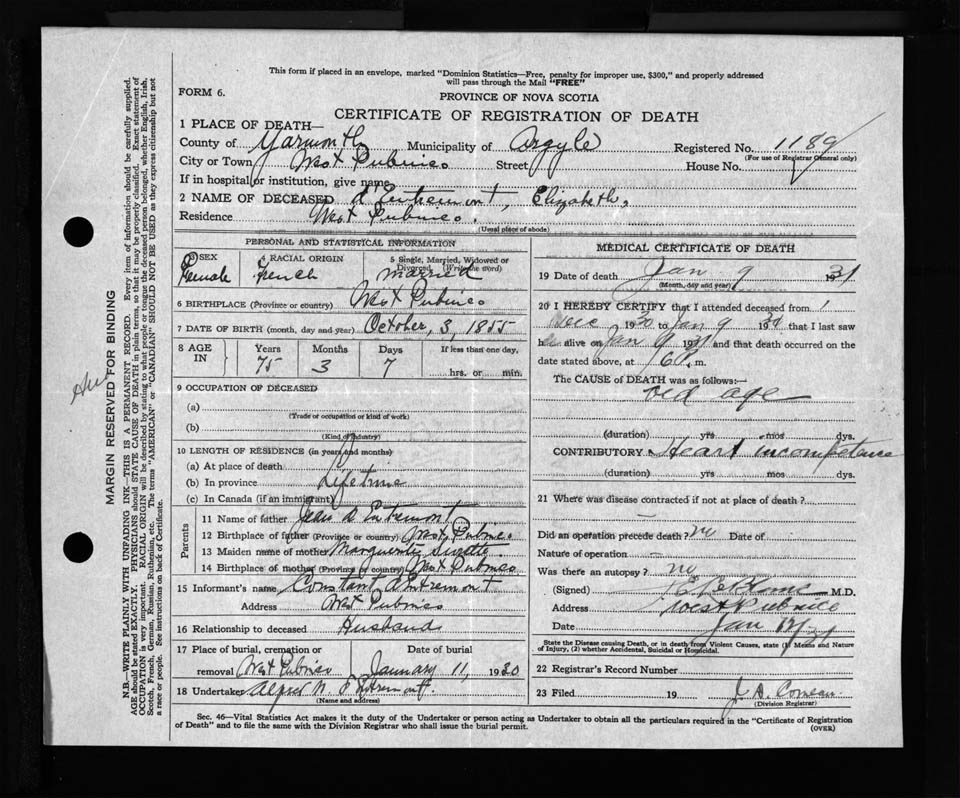 This form if placed in an envelope, marked "Dominion Statistics—Free, penalty for improper use, $300," and properly addressed
will pass through the Mail "FREE"
FORM 6.
PROVINCE OF NOVA SCOTIA
CERTIFICATE OF REGISTRATION OF DEATH
1 PLACE OF DEATH—
County of Yarmouth Municipality of Argyle Registered No. 1189
(For use of Registrar General only)
City or Town West Pubnico Street House No.
If in hospital or institution, give name
2 NAME OF DECEASED d'Entremont, Elizabeth,
Residence West Pubnico.
(Usual place of abode)
PERSONAL AND STATISTICAL INFORMATION
3 SEX 4 RACIAL ORIGIN 5 Single, Married, Widowed or
Divorced (Write the word)
Female French Married
6 BIRTHPLACE (Province or country) West Pubnico
7 DATE OF BIRTH (month, day and year) October, 3, 1855
8 AGE IN Years Months Days If less than one day,
75 3 7 hrs. or min.
9 OCCUPATION OF DECEASED
(a)
(Trade or occupation or kind of work)
(b)
(Kind of Industry)
10 LENGTH OF RESIDENCE (in years and months)
(a) At place of death
(b) In province Lifetime
(c) In Canada (if an immigrant)
Parents
11 Name of father Jean D Entremont
12 Birthplace of father (Province or country) West Pubnico
13 Maiden name of mother Marguerite
14 Birthplace of mother (Province or country) West Pubnico
15 Informant's name Constant d'Entremont
Address West Pubnico
16 Relationship to deceased Husband
17 Place of burial, cremation or Date of burial
removal West Pubnico January 11, 1930
18 Undertaker Alfred N. D'Entremont
(Name and address)
MEDICAL CERTIFICATE OF DEATH
19 Date of death Jan 9 1931
(Month, day and year)
20 I HEREBY CERTIFY that I attended deceased from 1
Dec 1930 to Jan 9 1931 that I last saw
her alive on Jan 9 1931 and that death occurred on the
date stated above, at 6 P. m.
The CAUSE of DEATH was as follows:—
old age
(duration) yrs mos dys.
CONTRIBUTORY Heart incompetence
(duration) yrs mos dys.
21 Where was disease contracted if not at place of death?
Did an operation precede death? no Date of
Nature of operation —
Was there an autopsy? no
(Signed) LeBlanc M.D.
Address West Pubnico
Date Jan 31
State the Disease causing Death, or in death from Violent Causes, state (1) Means and Nature
of Injury, (2) whether Accidental, Suicidal or Homicidal.
22 Registrar's Record Number
23 Filed 19 J. A. Comeau
(Division Registrar)
Sec. 46—Vital Statistics Act makes it the duty of the Undertaker or person acting as Undertaker to obtain all the particulars required in the "Certificate of Registration
of Death" and to file the same with the Division Registrar who shall issue the burial permit.
(OVER)
MARGIN RESERVED FOR BINDING
N.B.—WRITE PLAINLY WITH UNFADING INK—THIS IS A PERMANENT RECORD. Every item of information should be carefully supplied.
AGE should be stated EXACTLY. PHYSICIANS should STATE CAUSE OF DEATH in plain terms, so that it may be properly classified. Exact statement of
OCCUPATION is very important. RACIAL ORIGIN will be described by stating to what people or tongue the deceased person belonged, whether English, Irish,
Scotch, French, German, Russian, Ruthenian, etc. The terms "AMERICAN" or "CANADIAN" SHOULD NOT BE USED as they express citizenship but not
a race or people. See instructions on back of Certificate.